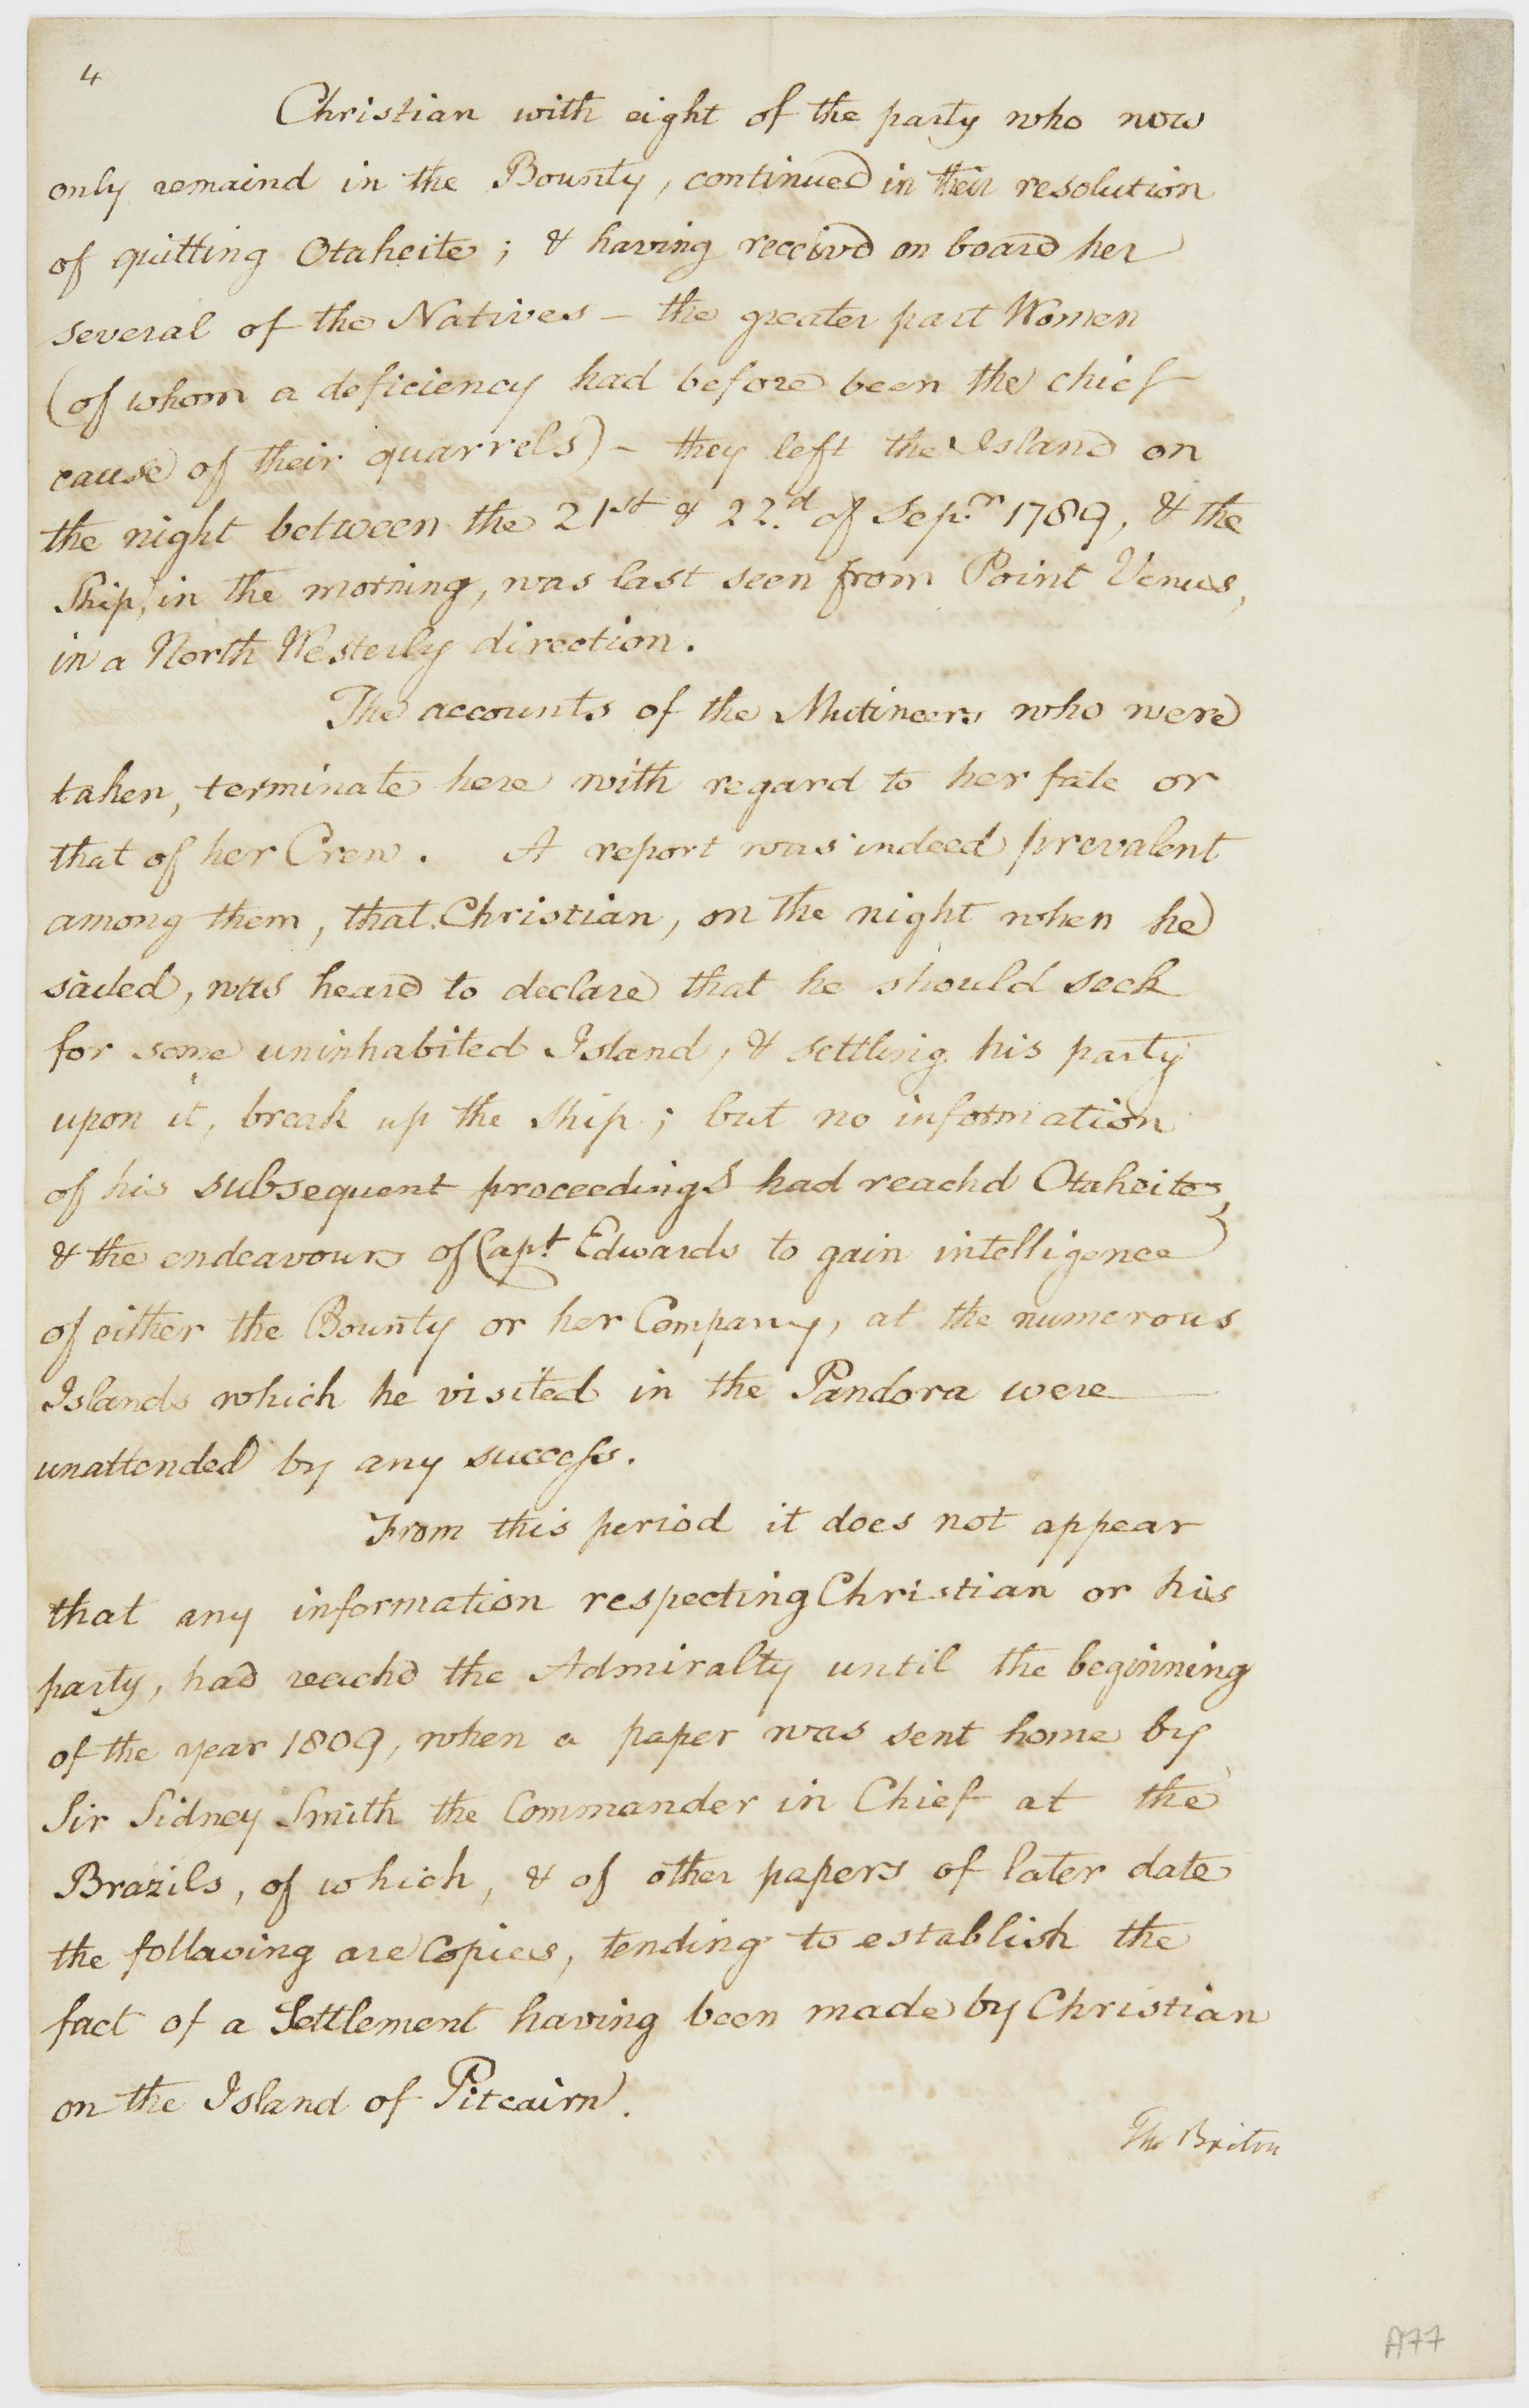 4
Christian with eight of the party who now
only remaind in the Bounty, continued in their resolution
of quitting Otaheite; & having receivd on board her
several of the Natives – the greater part Women
(of whom a deficiency had before been the chief
cause of their quarrels) – they left the Island on
the night between the 21st & 22.d of Sep.r 1789, & the
Ship, in the morning, was last seen from Point Venus,
in a North Westerly direction.
The accounts of the Mutineers who were
taken, terminate here with regard to her fate or
that of her Crew. A report was indeed prevalent
among them, that Christian, on the night when he
sailed, was heard to declare that he should seek
for some uninhabited Island, & settling his party
upon it, break up the Ship; but no information
of his subsequent proceedings had reachd Otaheite,
& the endeavours of Cap.t Edwards to gain intelligence
of either the Bounty or her Company, at the numerous
Islands which he visited in the Pandora were
unattended by any success.
From this period it does not appear
that any information respecting Christian or his
party, had reachd the Admiralty until the beginning
of the year 1809, when a paper was sent home by
Sir Sidney Smith the Commander in Chief at the
Brazils, of which, & of other papers of later date
the following are Copies, tending to establish the
fact of a Settlement having been made by Christian
on the Island of Pitcairn.
The Briton
A77